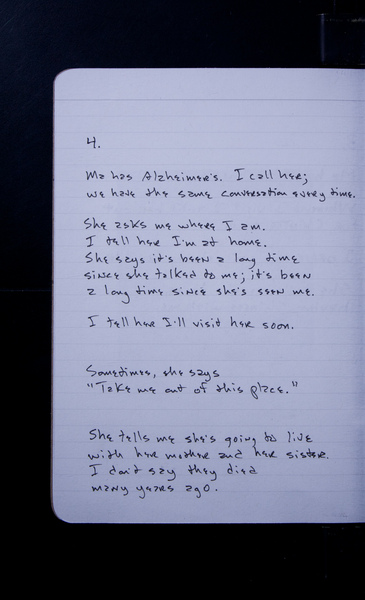 4.
Ma has Alzheimer's. I call her;
we have the same conversation every time.
She asks me where I am.
I tell her I'm at home.
She says it's been a long time
since she talked to me; it's been
a long time since she's seen me.
I tell her I'll visit her soon.
Sometimes, she says
"Take me out of this place."
She tells me she's going to live
with her mother and her sister.
I don't say they died
many years ago.